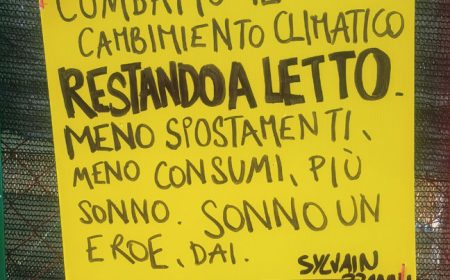 COMBATTO IL
CAMBIMIENTO CLIMATICO
RESTANDO A LETTO.
MENO SPOSTAMENTI,
MENO CONSUMI, PIÙ
SONNO. SONNO UN
EROE, DAI.
SYLVAIN